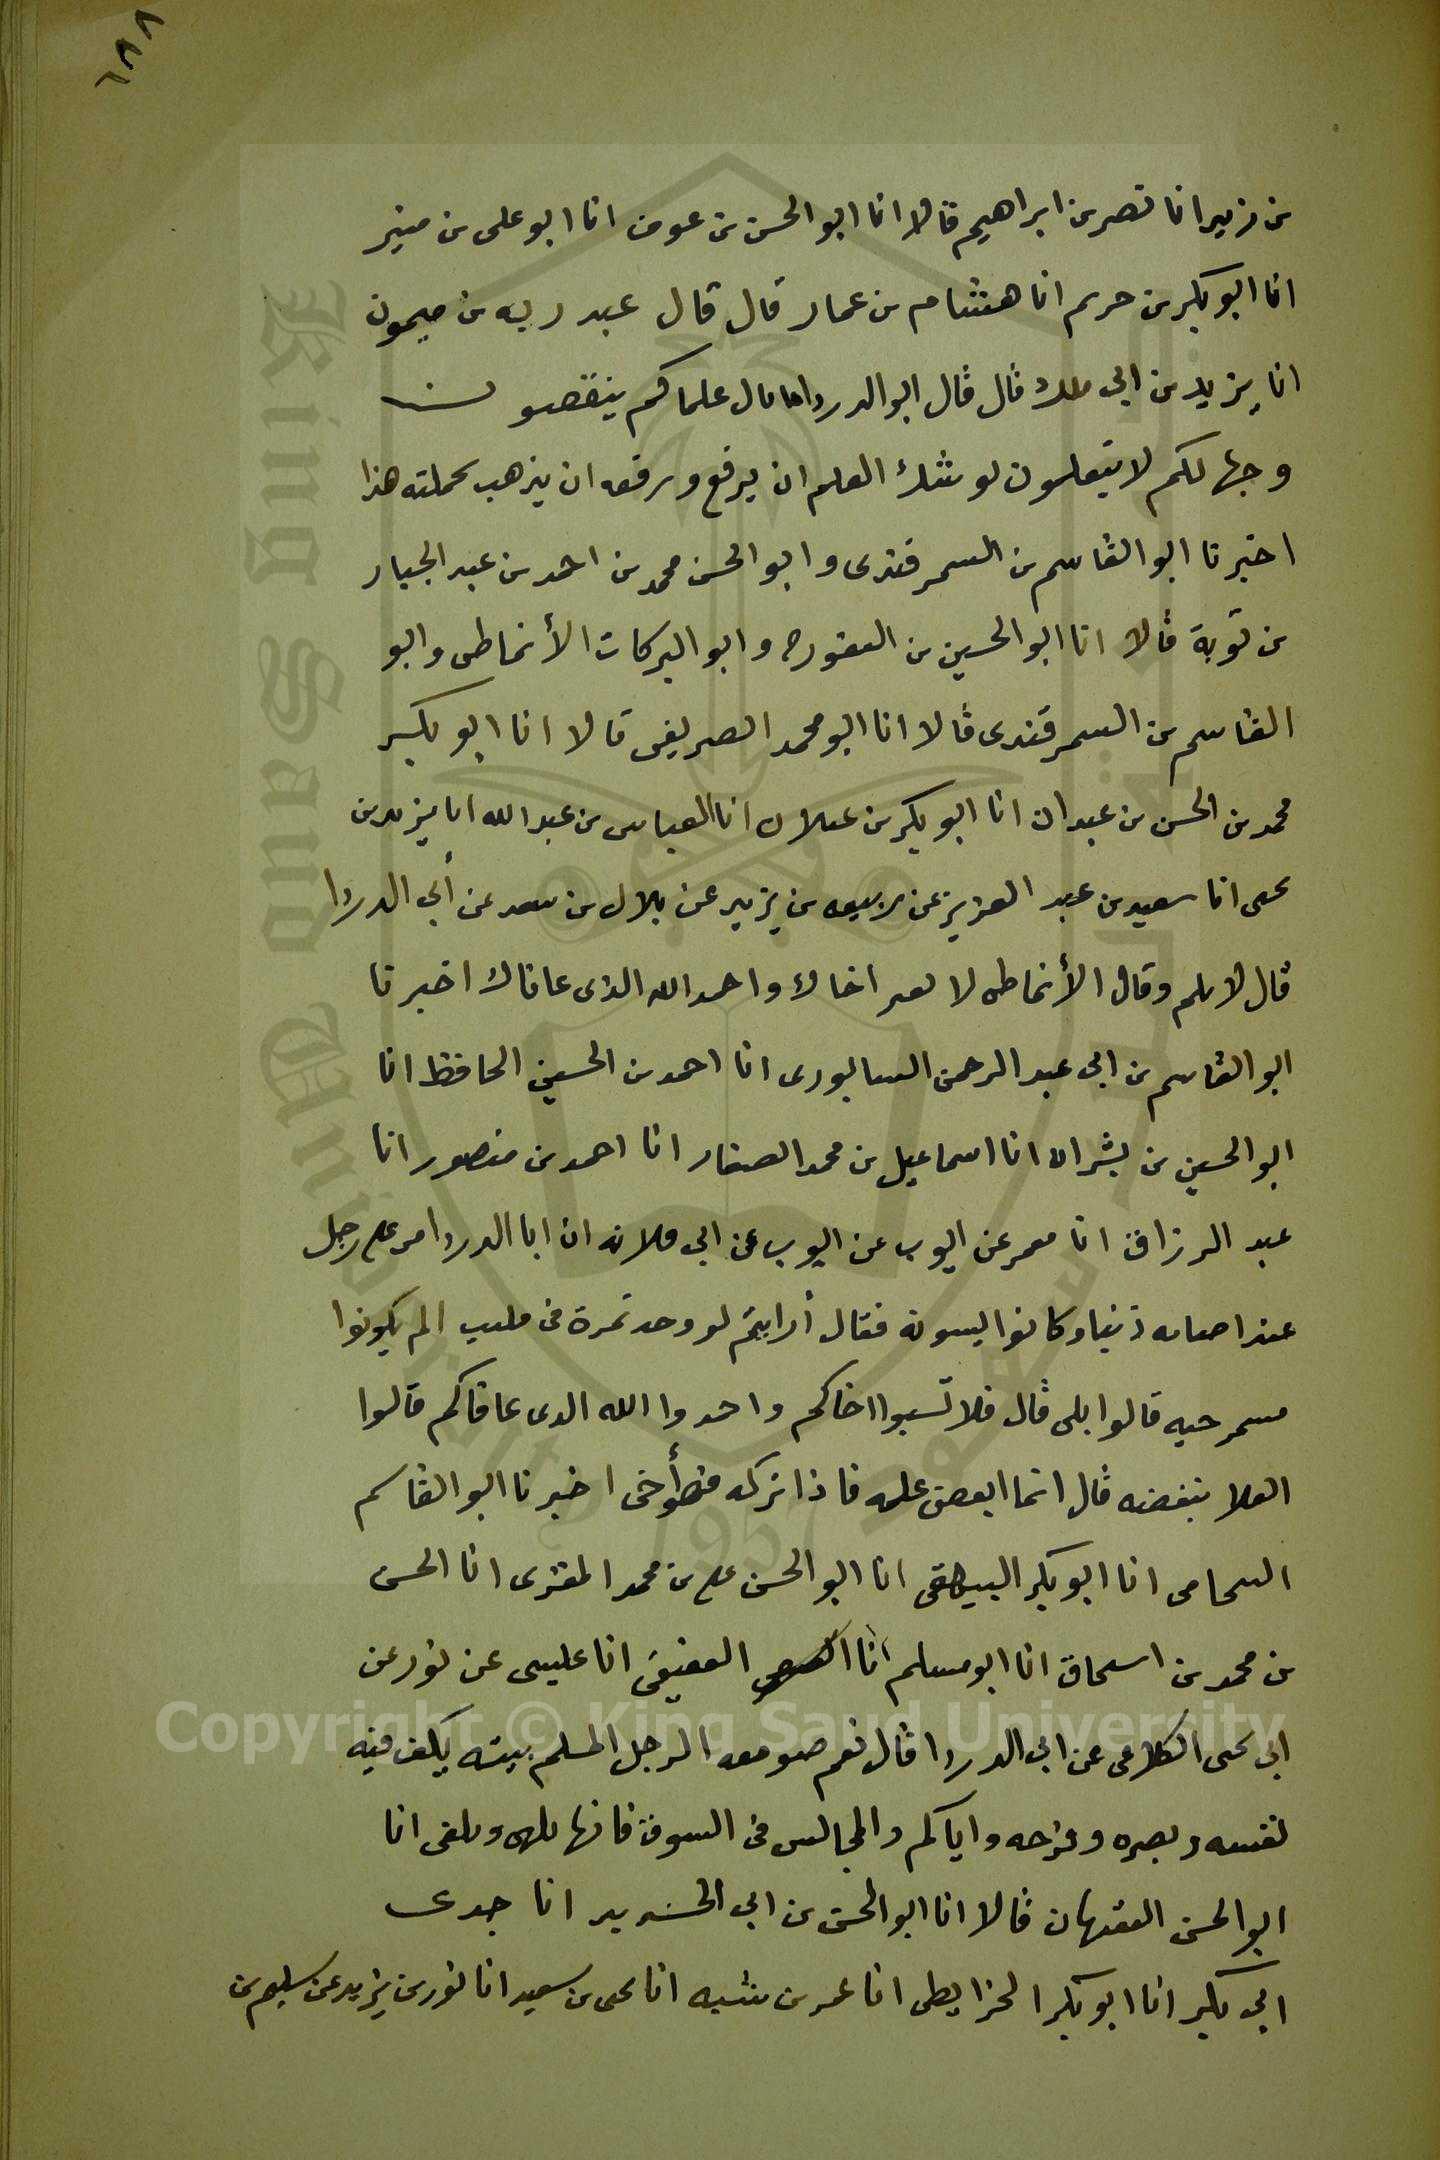 ٦٨٨
بن زبير انا نصر بن ابراهيم قالا انا ابو الحسن بن عوف انا ابو على بن منير
انا ابو بكر بن حريم انا هشام بن عمار قال قال عبد ربه بن ميمون
انا يزيد بن ابى ملك قال قال ابو الدردا ما مال علماكم ينقصون
وجهالكم لا يتعلمون لو شك العلم ان يرفع ورفعه ان يذهب بحملته هذا
اخبرنا ابو القاسم بن السمرقندى وابو الحسن محمد بن احمد بن عبد الجبار
بن توبة قالا انا ابو الحسين بن النقور ح وابو البركات الأنماطى وابو
القاسم بن السمرقندى قالا انا ابو محمد الصريفى قالا انا ابو بكر
محمد بن الحسن بن عبدان انا ابو بكر بن علان انا العباس بن عبد الله انا يزيد بن
يحى انا سعيد بن عبد العزيز عن ربيعه بن يزيد عن بلال بن سعد عن أبى الدردا
قال لا يلم وقال الأنماطى لا تعير اخاك واحمد الله الذى عافاك اخبرنا
ابو القاسم بن ابى عبد الرحمن السابورى انا احمد بن الحسين الحافظ انا
ابو الحسين بن بشران انا اسماعيل بن محمد الصفار انا احمد بن منصور انا
عبد الرزاق انا معمر عن ايوب عن ايوب عن ابى قلابه ان ابا الدردا مر على رجل
عند اصابه ذنبا وكانوا يسبونه فقال أرايتم لو وجدتمرة فى قليب الم يكونوا
مسمرحيه قالوا بلى قال فلا تسبوا اخاكم واحمدوا الله الدى عافاكم قالوا
افلا نبغضه قال انما ابغض عمله فاذا تركه فهو أخى اخبرنا ابو القاسم
السحامى انا ابو بكر البيهقى انا ابو الحسن على بن محمد المقرى انا الحسن
بن محمد بن اسحاق انا ابو مسلم انا العفيفى انا عليسى عن ثور عن
ابى يحى الكلاعى عن ابى الدردا قال نعم صومعه الرجل المسلم بيته يكف فيه
نفسه وبصره وفرجه واياكم والمجالس فى السوق فانها تلهى وتلغى انا
ابو الحسن الفقيهان قالا انا ابو الحسن بن ابى الحديد انا جدى
ابى بكر انا ابو بكر الخرايطى انا عمر بن شبه انا يحى بن سعيد انا ثور بن يزيد عن سليم بن